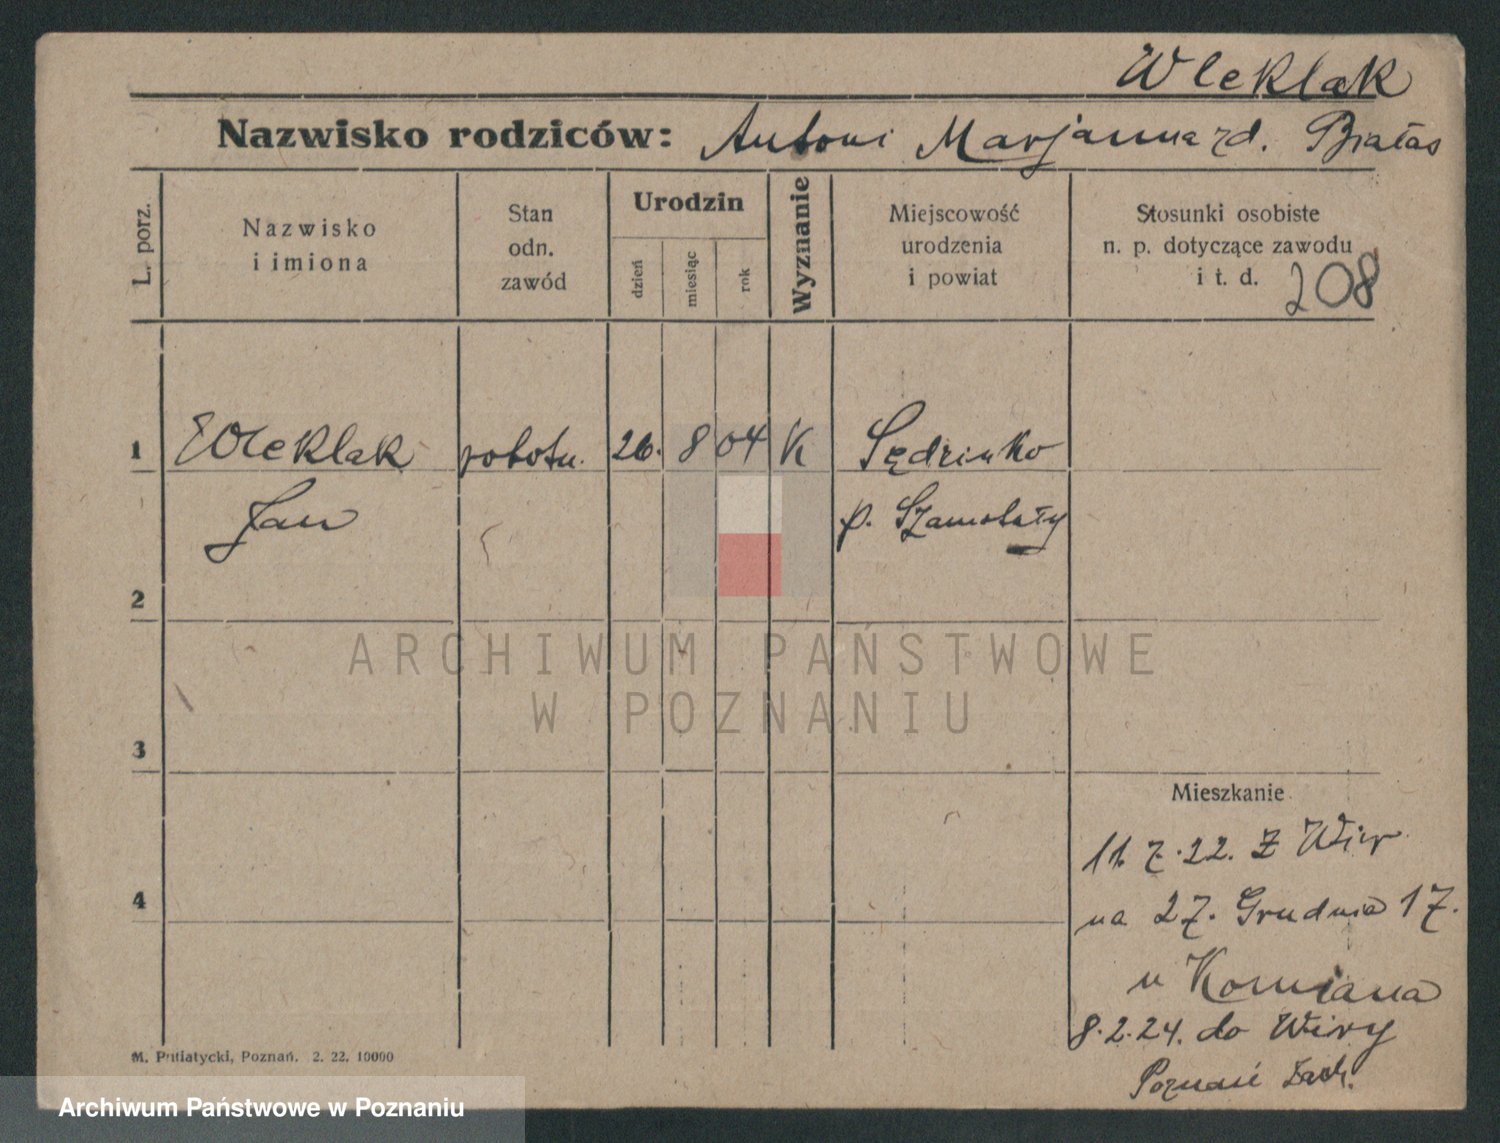 Wleklak
Nazwisko rodziców: Antoni Marjanna zd. Bratas
L. porz.
Nazwisko
i imiona
Stan
odn.
zawód
Urodzin
dzień
miesiąc
rok
Wyznanie
Miejscowość
urodzenia
i powiat
Stosunki osobiste
n. p. dotyczące zawodu
i t. d.
208
1 Wleklak robotn. 26. 8 04 K Sędzinko
Jan p. Szamotuły
2
ARCHIWUM PAŃSTWOWE
W POZNANIU
3
Mieszkanie
11. 7. 22. Z Wir
4
na 27. Grudnia 17.
u
8. 2. 24. do Wiry
M. Putiatycki, Poznań. 2. 22. 10000
Poznań Zach.
Archiwum Państwowe w Poznaniu